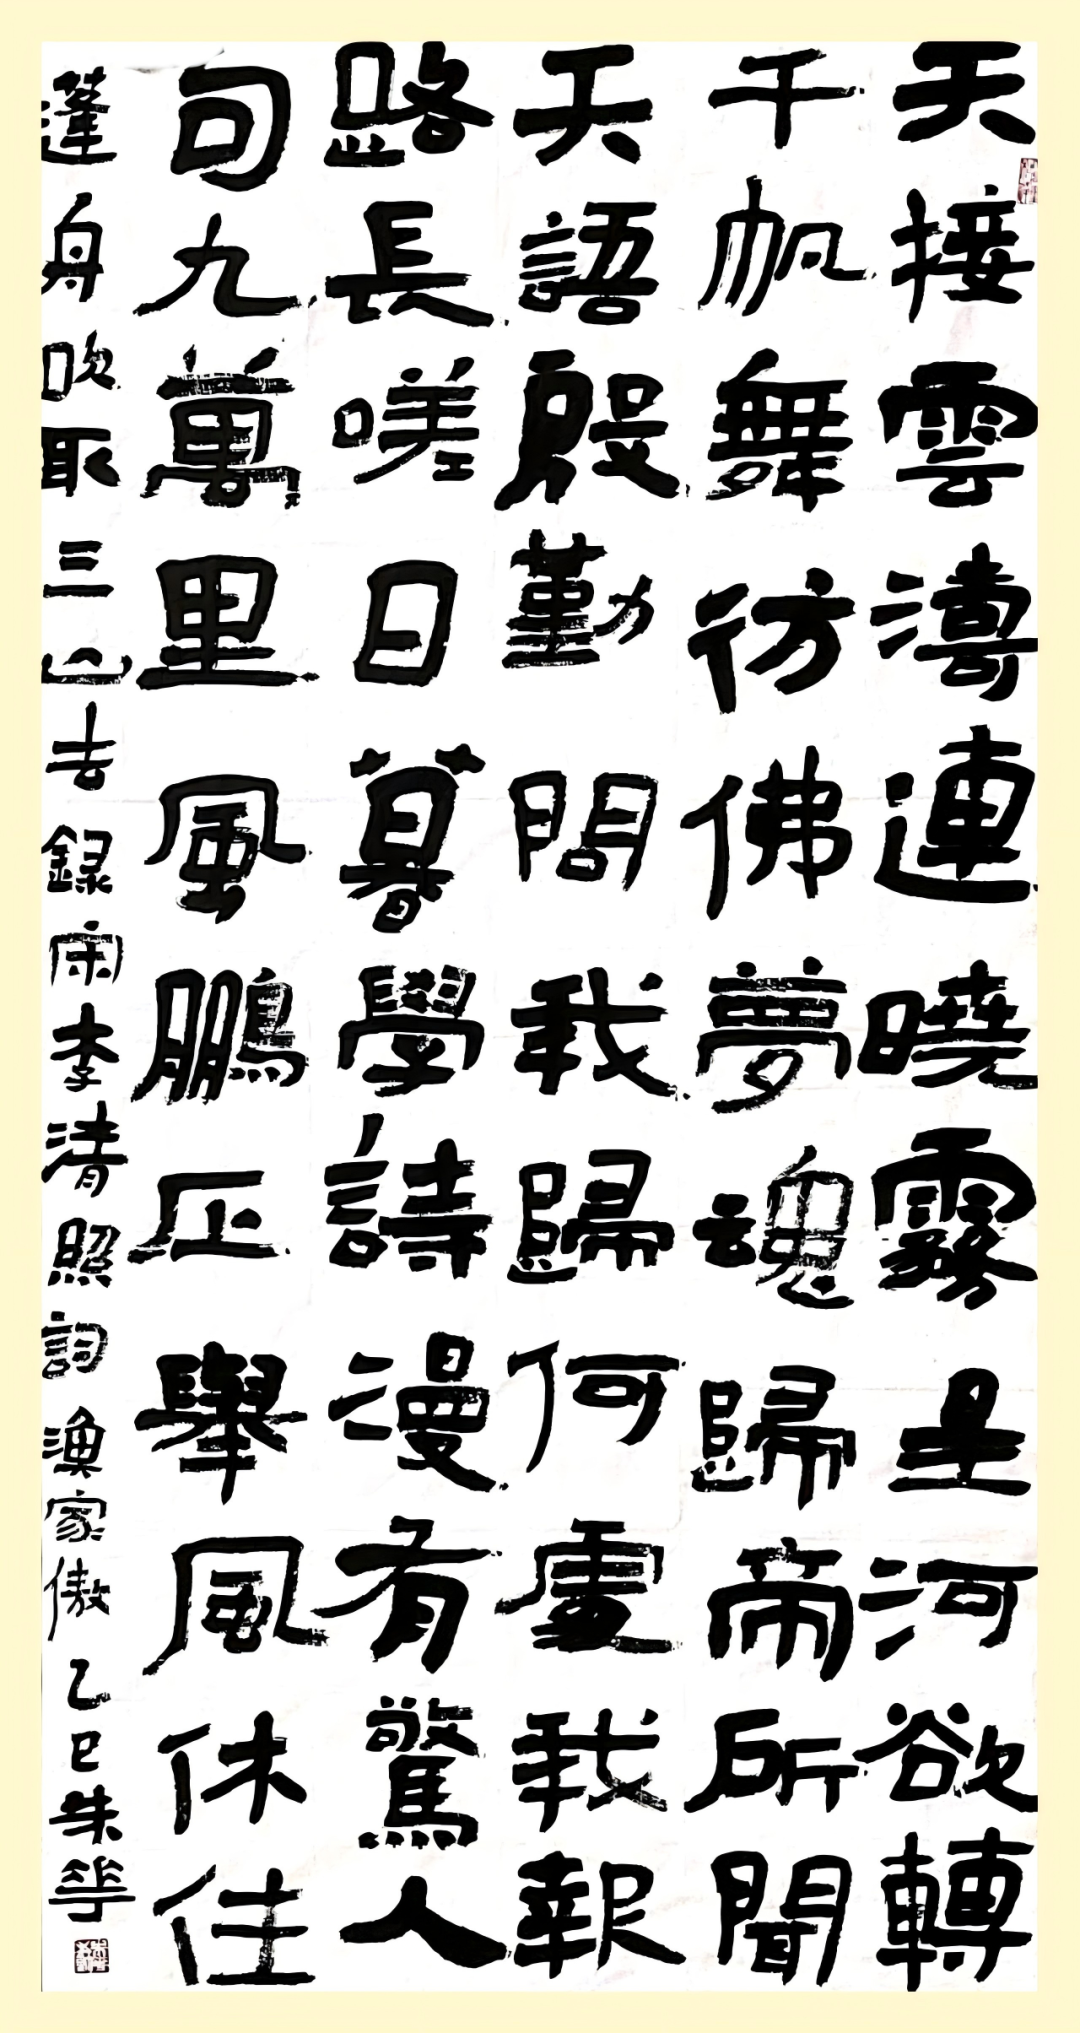 天接雲濤連曉霧星河欲轉
千帆舞彷佛夢魂歸帝所聞
天語殷勤問我歸何處我報
路長嗟日暮學詩漫有驚人
句九萬里風鵬正舉風休住
蓬舟吹取三山去錄宋李清照詞漁家傲乙巳朱華